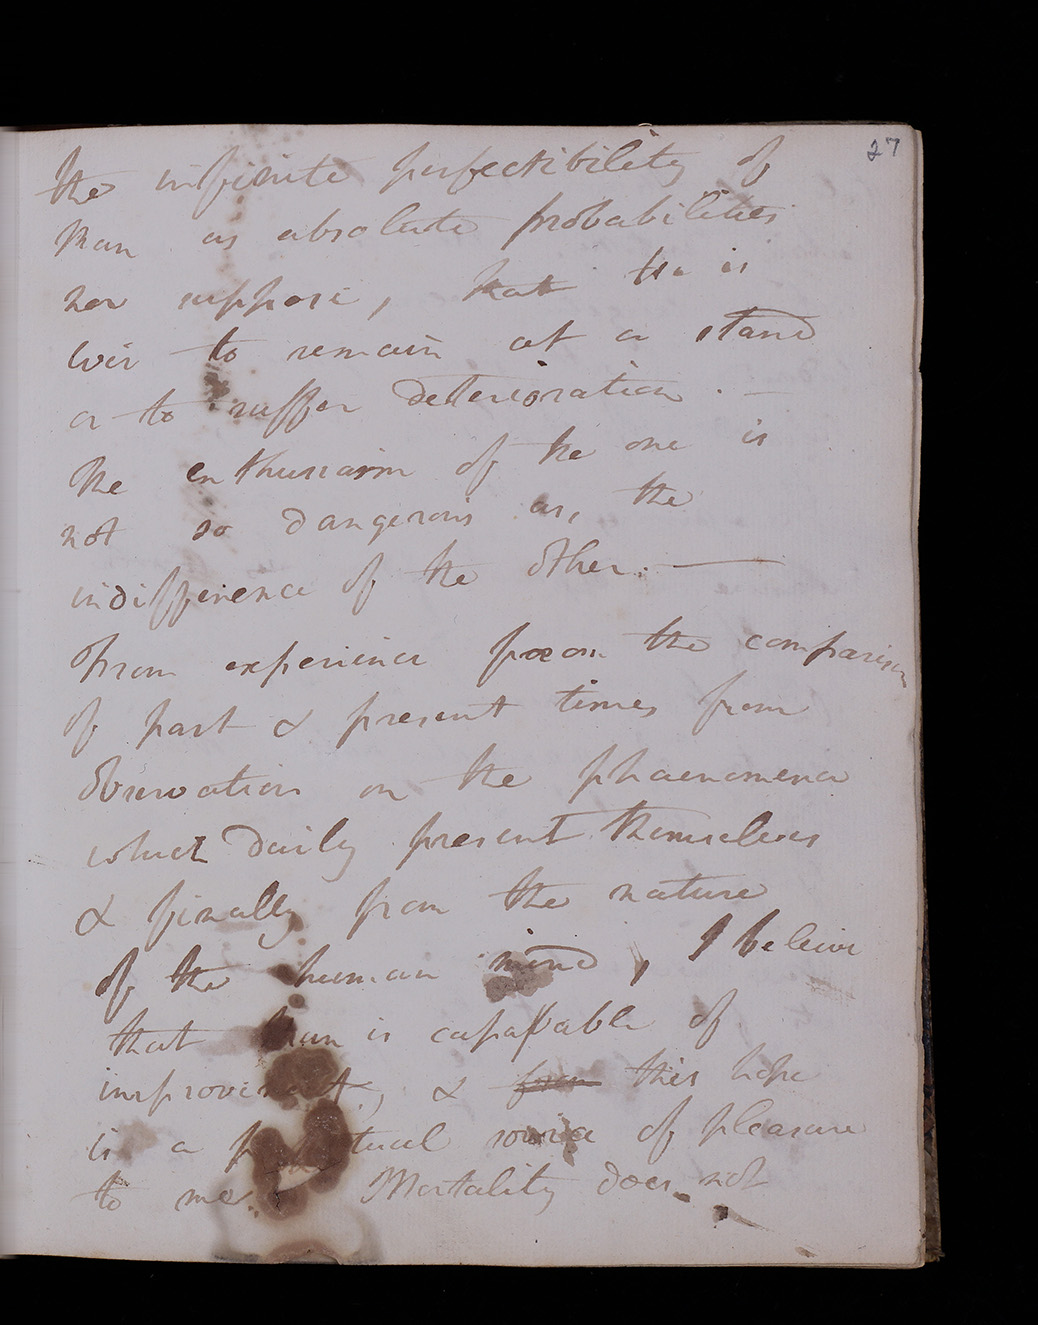 27
the infinite perfectibility of
Man as absolute probabilities
nor suppose, that He is
ever to remain at a stand
or to suffer deterioration. —
The enthusiasm of the one is
not so dangerous as, the
indifference of the other. —
From experience from the comparison
of past & present times from
observation on the phaenomena
which daily present themselves
& finally from the nature
of the human mind, I beleive
that Man is capable of
improvement, & from this hope
is a perpetual source of pleasure
to me. Mortality does not